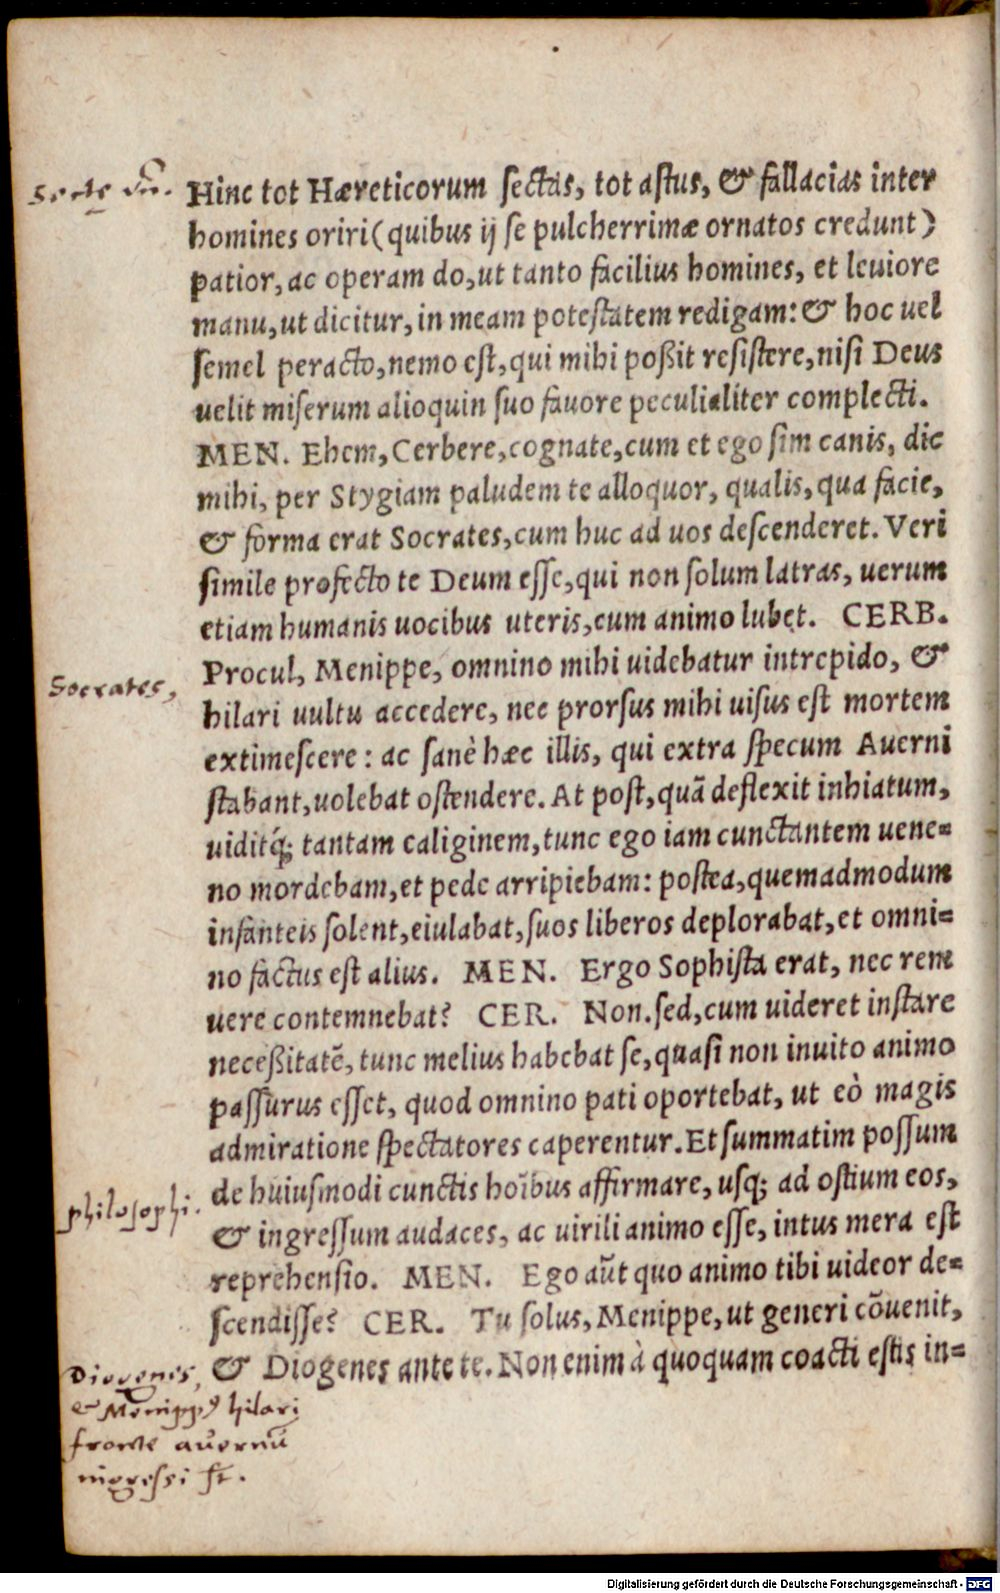 Hinc tot Hæreticorum sectas, tot astus, & fallacias inter
homines oriri (quibus ij se pulcherrimæ ornatos credunt)
patior, ac operam do, ut tanto facilius homines, et leuiore
manu, ut dicitur, in meam potestatem redigam: & hoc uel
semel peracto, nemo est, qui mihi poßit resistere, nisi Deus
uelit miserum alioquin suo fauore peculialiter complecti.
MEN. Ehem, Cerbere, cognate, cum et ego sim canis, dic
mihi, per Stygiam paludem te alloquor, qualis, qua facie,
& forma erat Socrates, cum huc ad uos descenderet. Veri
simile profecto te Deum esse, qui non solum latras, uerum
etiam humanis uocibus uteris, cum animo lubet. CERB.
Socrates,
Procul, Menippe, omnino mihi uidebatur intrepido, &
hilari uultu accedere, nec prorsus mihi uisus est mortem
extimescere: ac sanè hæc illis, qui extra specum Auerni
stabant, uolebat ostendere. At post, quã deflexit inhiatum,
uiditq́; tantam caliginem, tunc ego iam cunctantem uene=
no mordebam, et pede arripiebam: postea, quemadmodum
infanteis solent, eiulabat, suos liberos deplorabat, et omni=
no factus est alius. MEN. Ergo Sophista erat, nec rem
uere contemnebat? CER. Non. sed, cum uideret instare
neceßitatē, tunc melius habebat se, quasi non inuito animo
passurus esset, quod omnino pati oportebat, ut eò magis
admiratione spectatores caperentur. Et summatim possum
philosophi.
de huiusmodi cunctis hoĩbus affirmare, usq; ad ostium eos,
& ingressum audaces, ac uirili animo esse, intus mera est
reprehensio. MEN. Ego aũt quo animo tibi uideor de=
scendisse? CER. Tu solus, Menippe, ut generi cõuenit,
& Diogenes ante te. Non enim à quoquam coacti estis in=
Diogenes,
& Menippꝰ hilari
fronte auernũ
ingressi st.
Digitalisierung gefördert durch die Deutsche Forschungsgemeinschaft - DFG